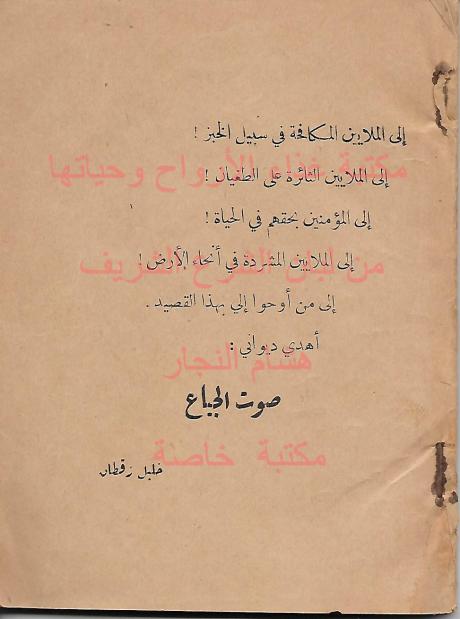 إلى الملايين المكافحة في سبيل الخبز !
مكتبة غذاء الأرواح وحياتها
إلى الملايين الثائرة على الطغيان !
إلى المؤمنين بحقهم في الحياة !
من لبان الشرع الشريف
إلى الملايين المشردة في أنحاء الأرض !
إلى من أوحوا إلي بهذا القصيد .
أهدي ديواني :
هسام النجار
صوت الجياع
مكتبة خاصنة
خليل زقطان